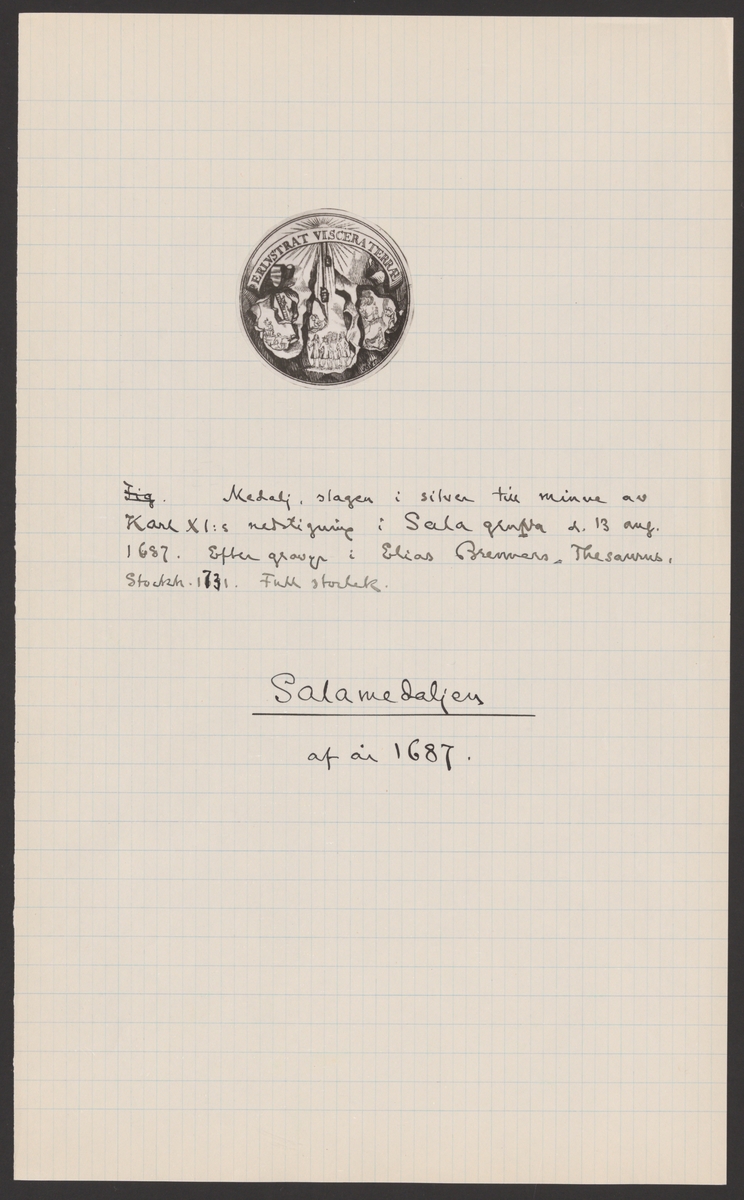 ERLVSTRAT VISCERA TERRÆ
Fig. Medalj, slagen i silver till minne av
Karl XI:s nedstigning i Sala grufva d. 13 aug.
1687. Efter gravyr i Elias Brenners, Thesaurus,
Stockh. 1731. Full storlek.
Salamedaljen
af år 1687.